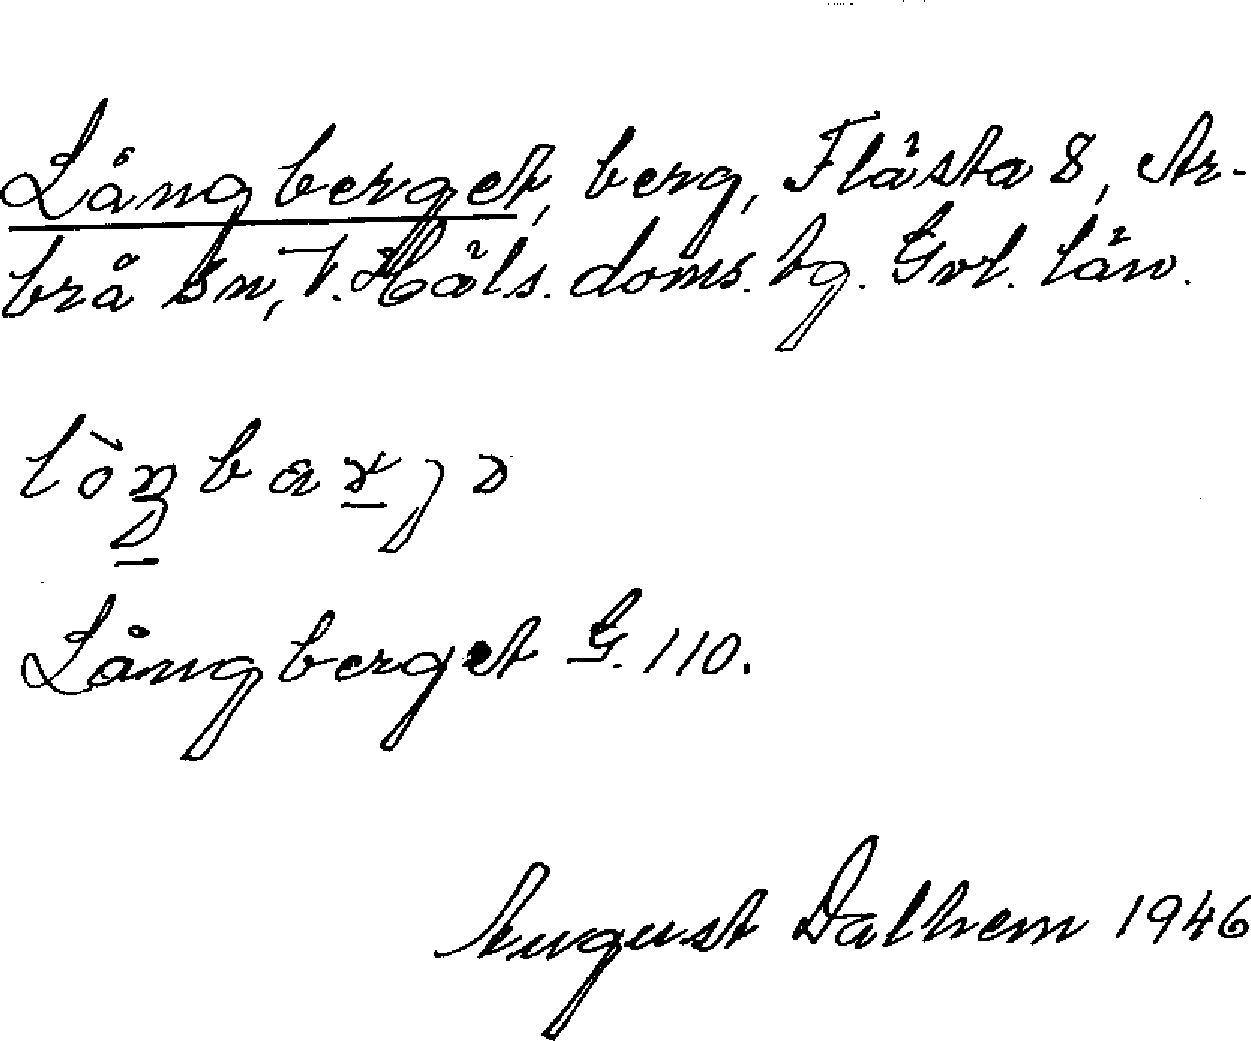 Långberget, berg, Flästa 8, Ar-
brå sn, V. Häls. doms. hg. Gvl. län.
Långberget G. 110.
August Dalhem 1946